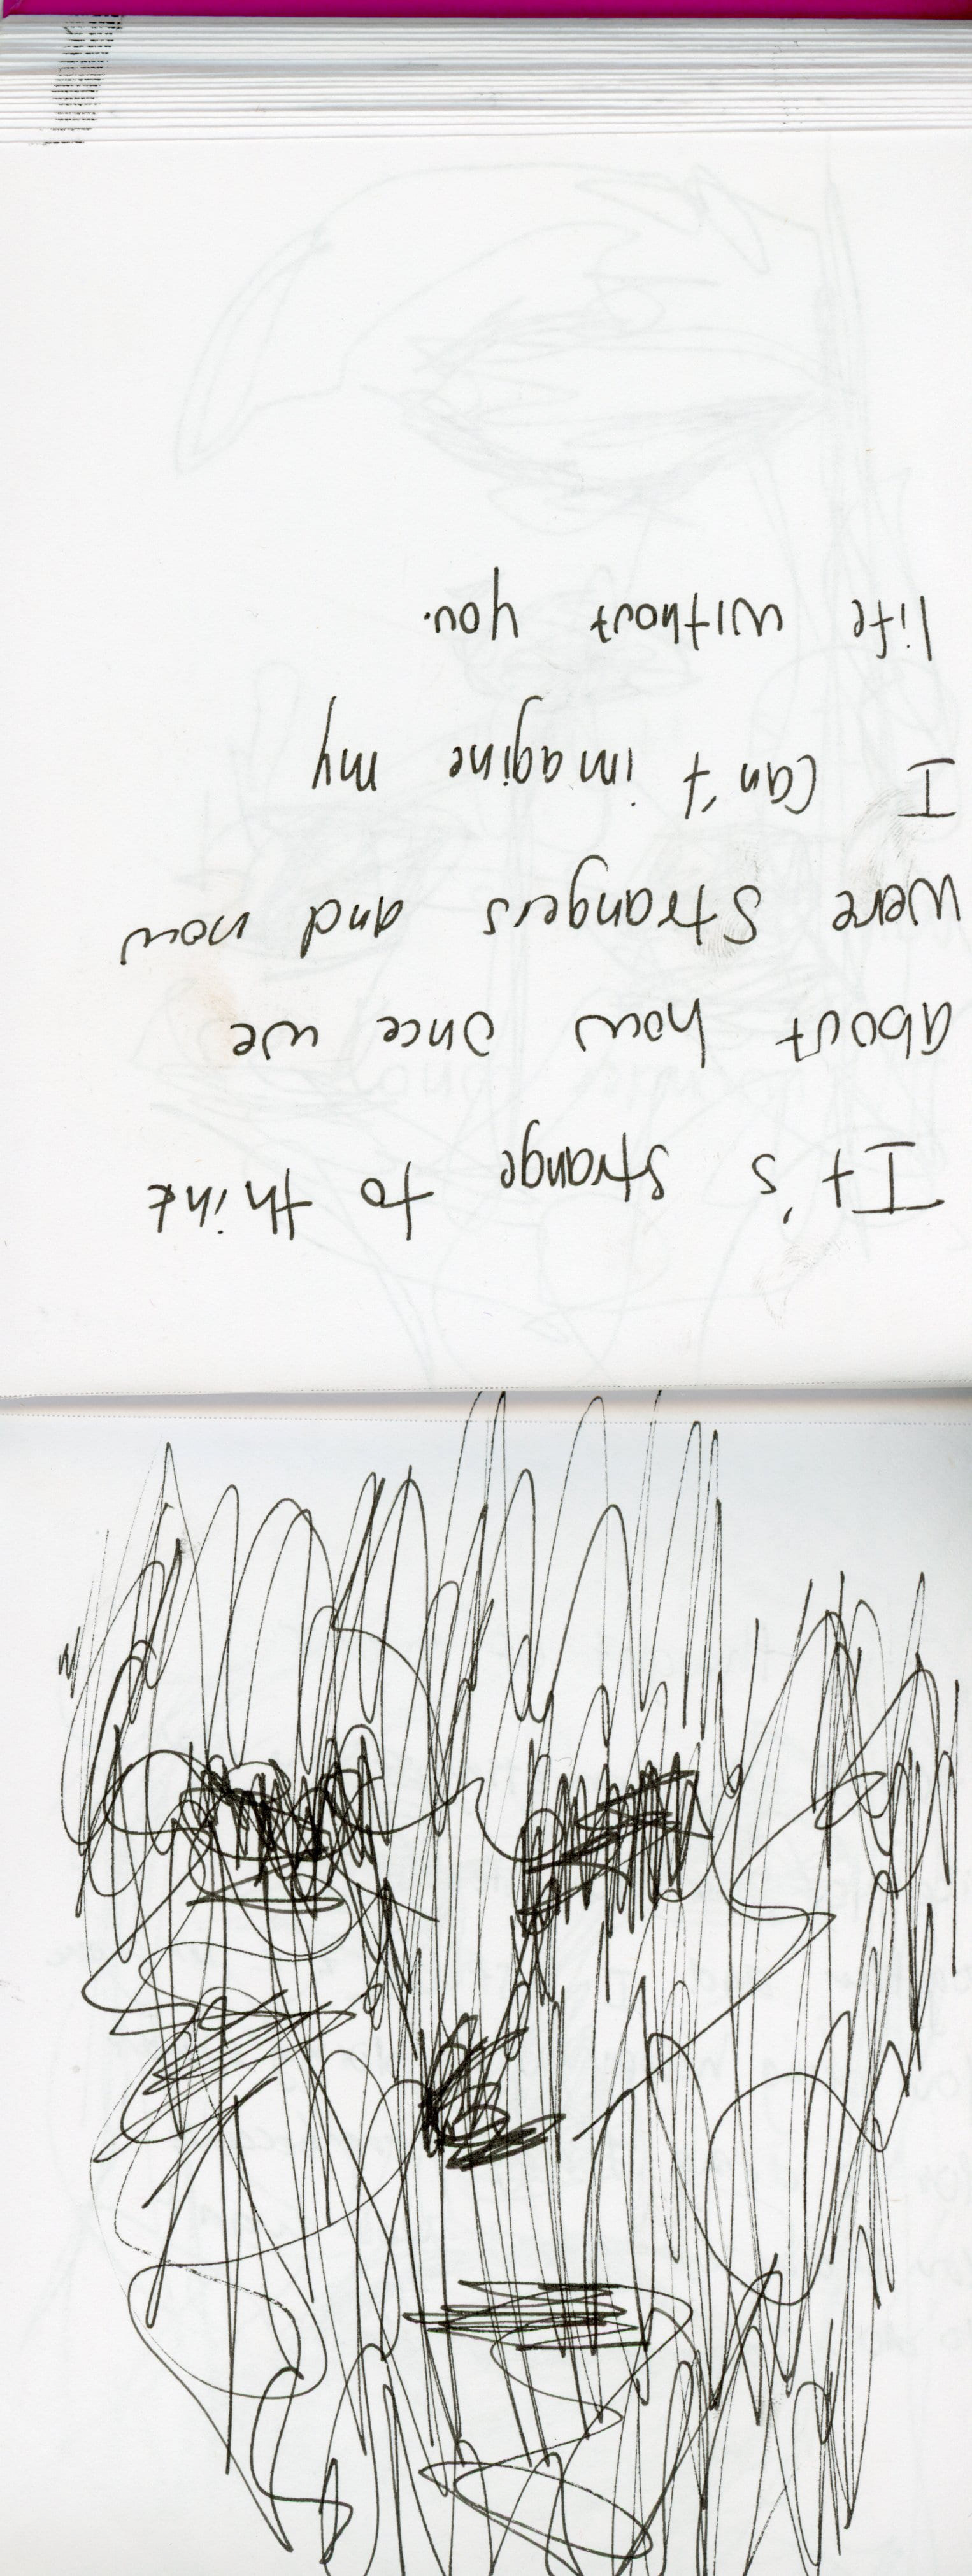 It's strange to think
about how once we
were strangers and now
I can't imagine my
life without you.